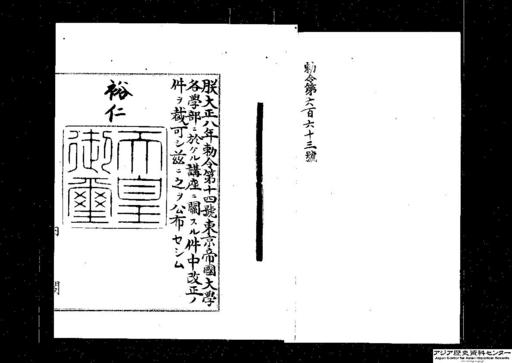 勅令第六百六十三號
朕大正八年勅令第十四號東京帝國大學
各學部ニ於ケル講座ニ關スル件中改正ノ
件ヲ裁可シ茲ニ之ヲ公布セシム
裕仁
天皇
御璽
アジア歴史資料センター
Japan Center for Asian Historical Records